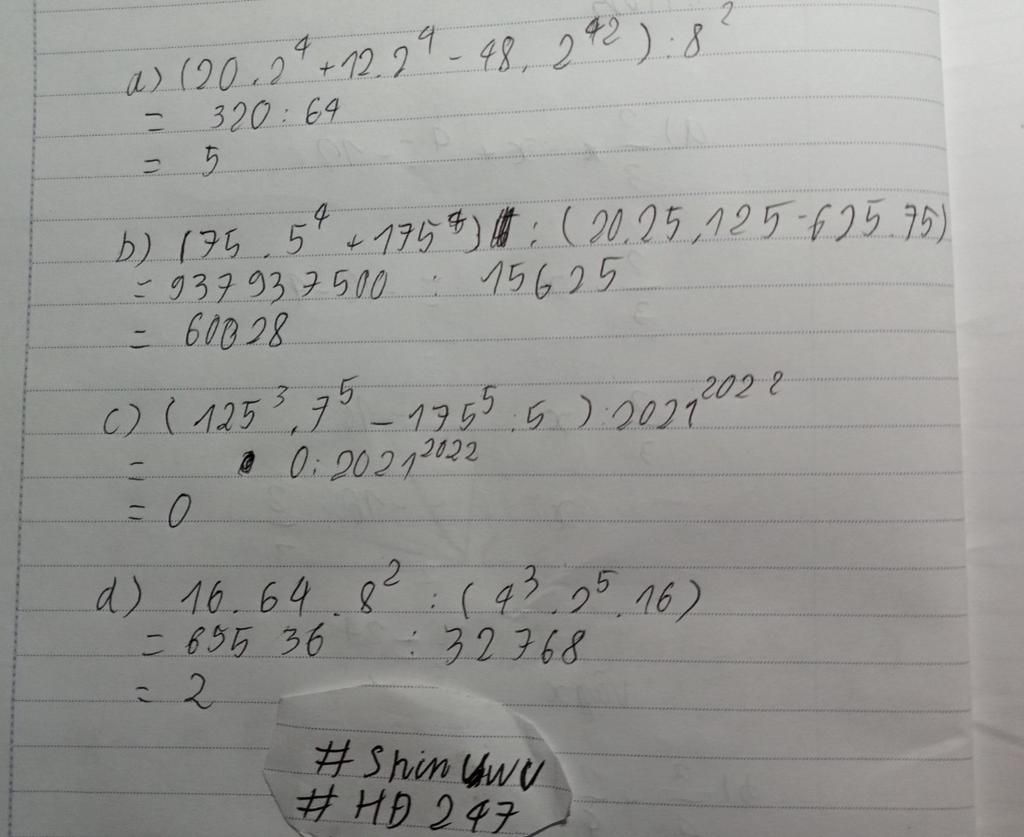 a) (20.2⁴ + 12.2⁴ - 48.2⁴²) : 8²
= 320 : 64
= 5
b) (75.5⁴ + 175⁴) : (20.25.125 - 625.75)
= 937937500 : 15625
= 60028
c) (125³.7⁵ - 175⁵:5) : 2021²⁰²²
= 0 : 2021²⁰²²
= 0
d) 16.64.8² : (4³.2⁵.16)
= 65536 : 32768
= 2
# Shin UwU
# HĐ 247